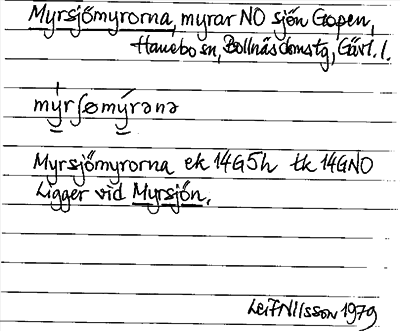 Myrsjömyrorna, myrar NO sjön Gopen,
Hanebo sn, Bollnäs domstg, Gävl. l.
mýrʃømýrəṇə
Myrsjömyrorna ek 14G5h tk 14GNO
Ligger vid Myrsjön.
Leif Nilsson 1979